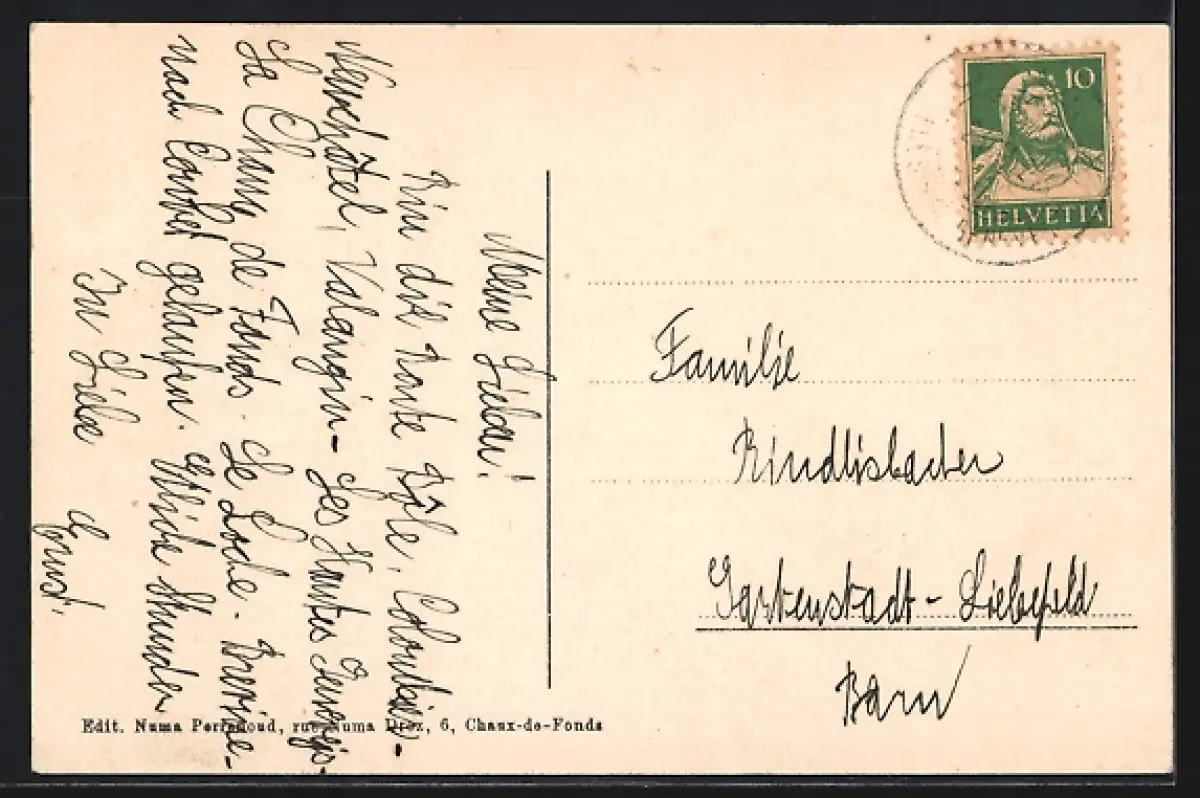 Meine Lieben!
Bin die Route Bôle, Colombier-
Neuchâtel, Valangin - Les Hautes Geneveys-
La Chaux de Fonds. Le Locle -
nach Couvet gelaufen. Stunden
In Liebe
Ernst.
10
HELVETIA
Familie
Rindlisbacher
Gartenstadt - Liebefeld
Bern
Edit. Numa Perrenoud, rue Numa Droz, 6, Chaux-de-Fonds